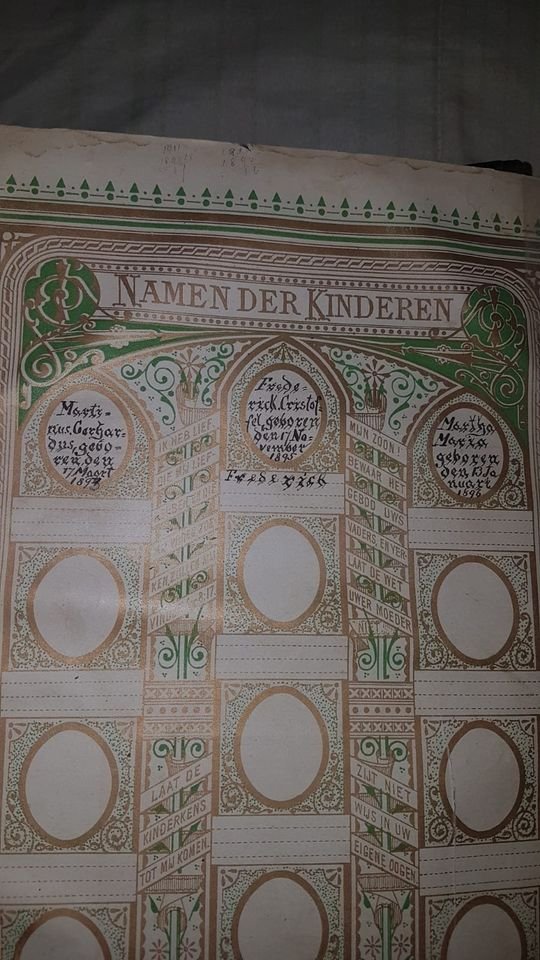 NAMEN DER KINDEREN
Marti-
nus Gerhar-
dus, gebo-
ren, den
17 Maart
Frede-
rick Cristof-
fel geboren
den 17 No-
vember
1895
Frederick
Martha
Maria
geboren
den 13 Ja
nuari
1896
IK HEB LIEF
MIJN ZOON!
BEWAAR HET
GEBOD UWS
VADERS EN VER-
LAAT DE WET
UWER MOEDER
LAAT DE
KINDERKENS
TOT MIJ KOMEN.
ZIJT NIET
WIJS IN UW
EIGENE OOGEN